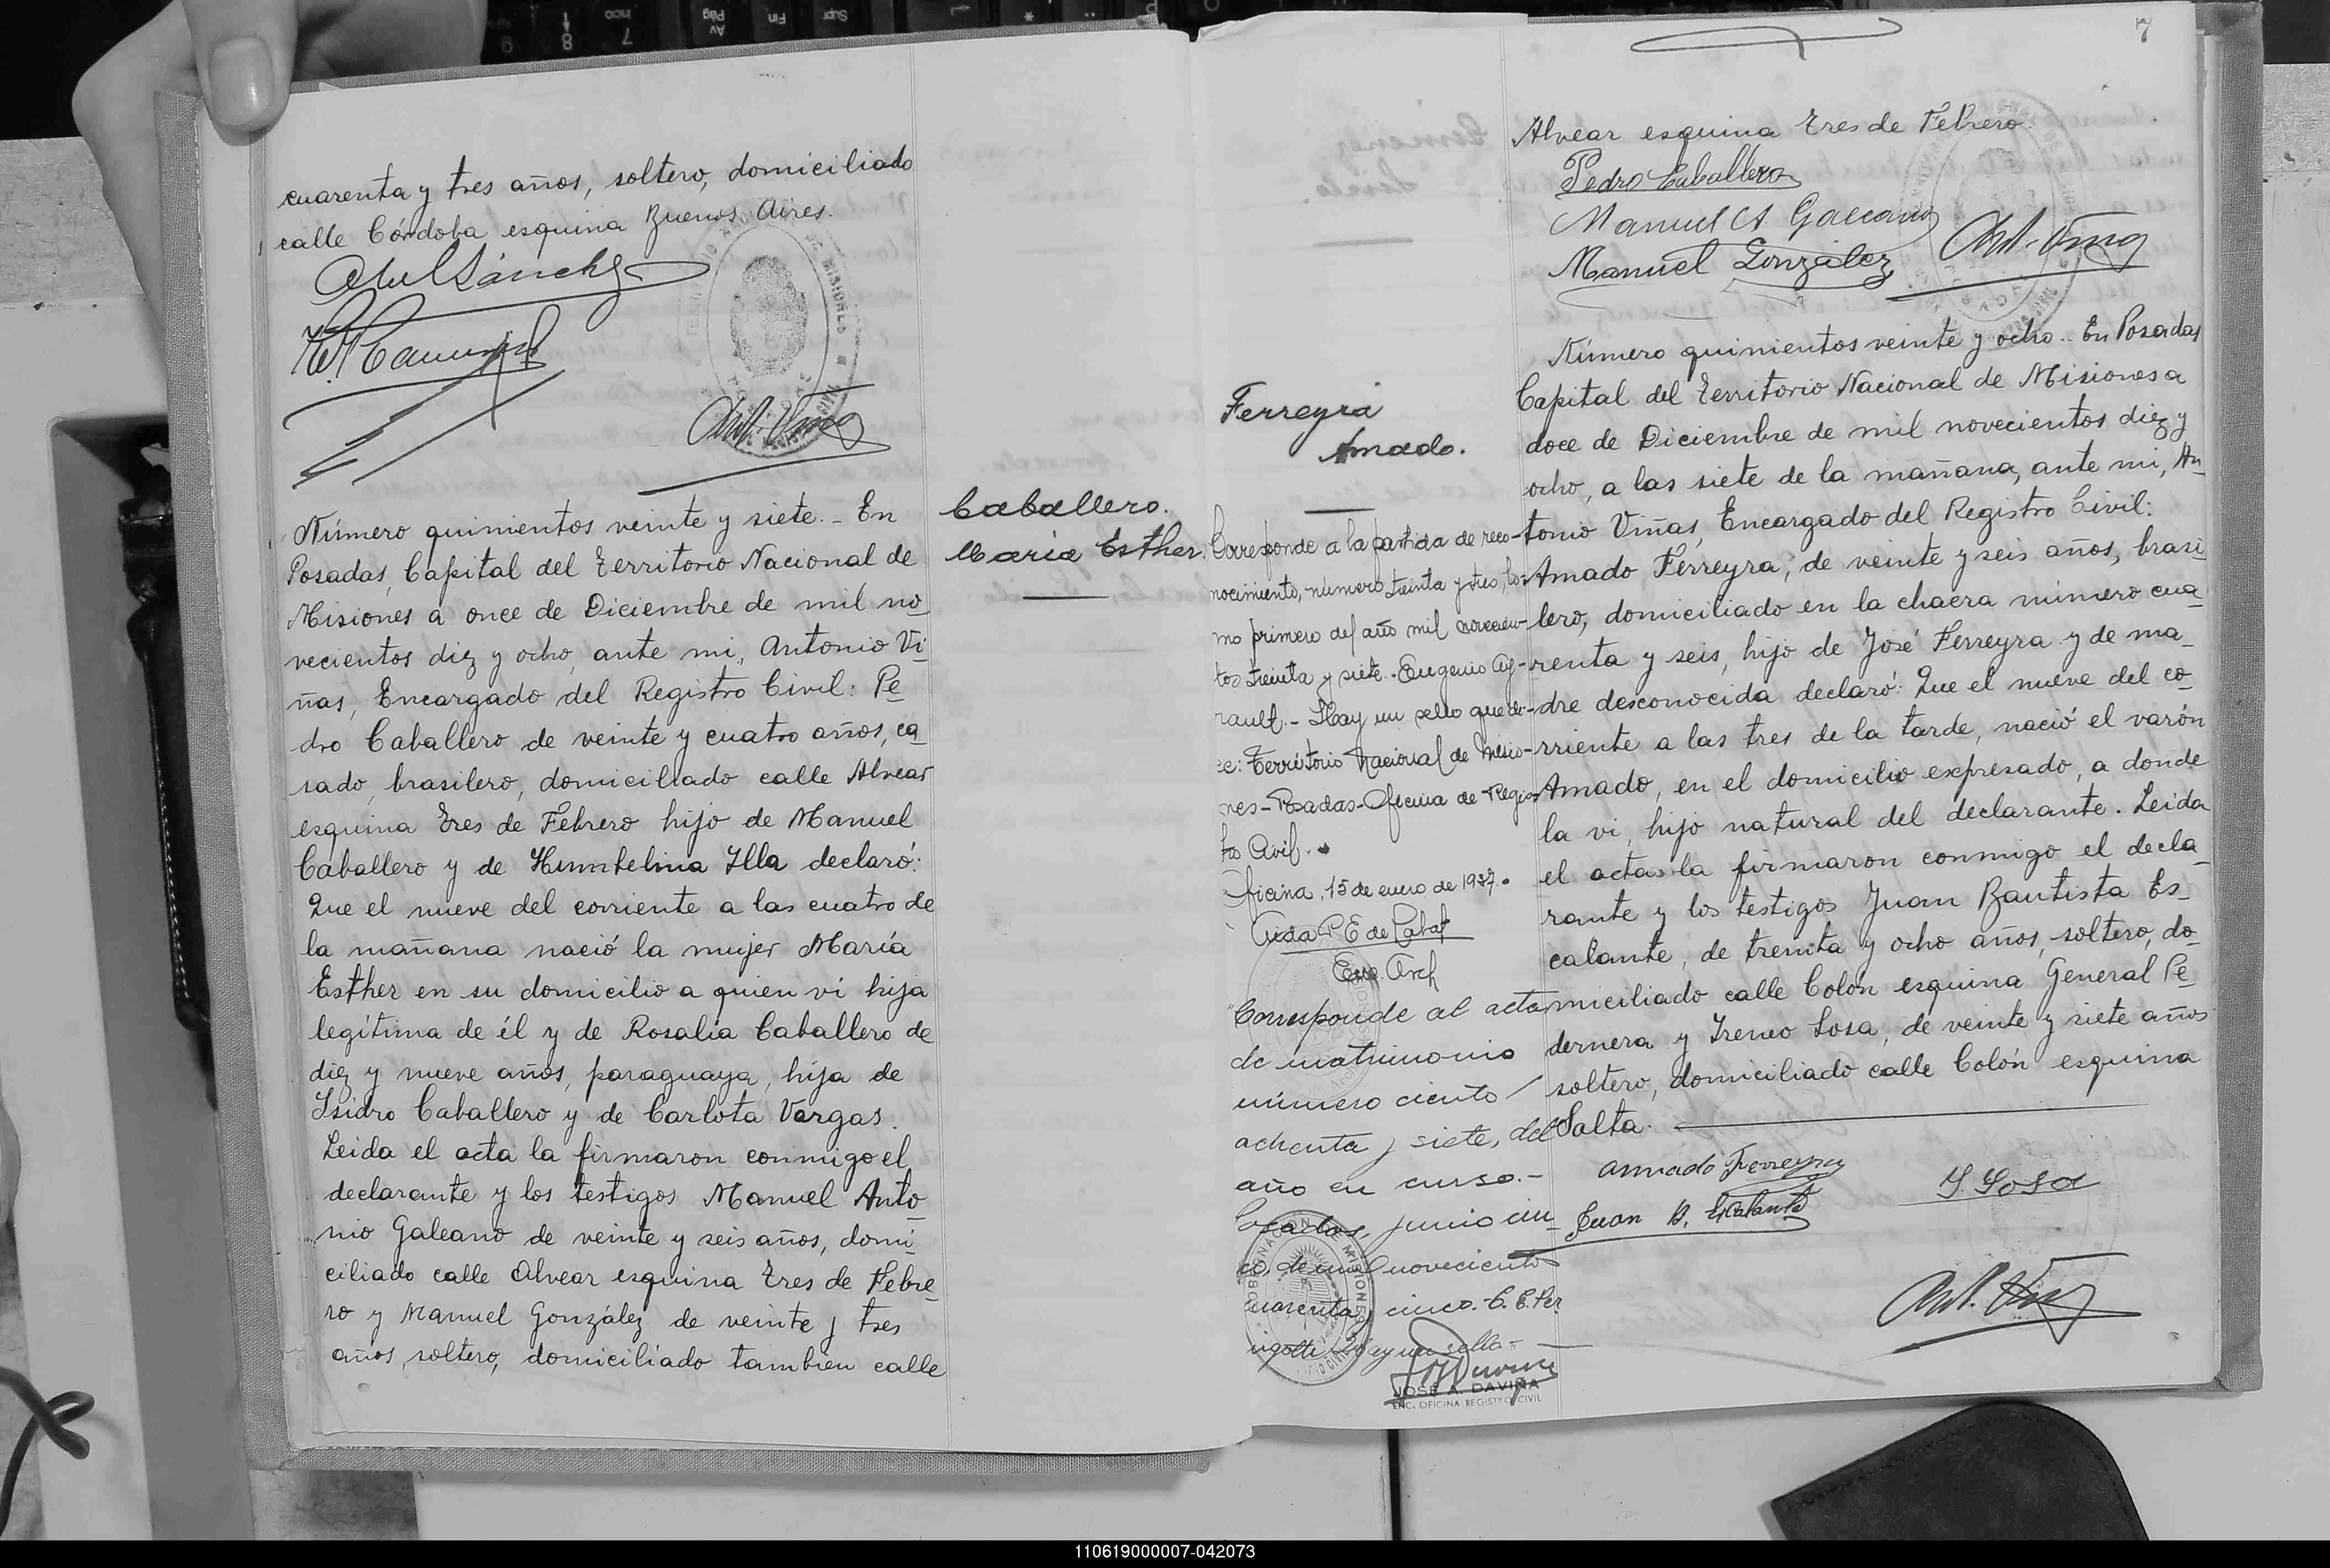 cuarenta y tres años, soltero, domiciliado
calle Córdoba esquina Buenos Aires.
Abel Sánchez
Número quinientos veinte y siete. - En
Posadas, Capital del Territorio Nacional de
Misiones a once de Diciembre de mil no
vecientos diez y ocho, ante mi, Antonio Vi
ñas, Encargado del Registro Civil: Pe
dro Caballero de veinte y cuatro años, ca
sado, brasilero, domiciliado calle Alvear
esquina Tres de Febrero hijo de Manuel
Caballero y de Humbelina Illa declaró:
Que el nueve del corriente a las cuatro de
la mañana nació la mujer María
Esther en su domicilio a quien vi hija
legítima de él y de Rosalía Caballero de
diez y nueve años, paraguaya, hija de
Isidro Caballero y de Carlota Vargas.
Leida el acta la firmaron conmigo el
declarante y los testigos Manuel Anto
nio Galeano de veinte y seis años, domi
ciliado calle Alvear esquina Tres de Febre
ro y Manuel González de veinte y tres
años, soltero, domiciliado tambien calle
Caballero.
Maria Esther.
7
Alvear esquina Tres de Febrero.
Pedro Caballero
Manuel A. Galeano
Manuel González
Ant. Viñas
Ferreyra
Amado.
Corresponde a la partida de reco-
nocimiento, número treinta y tres, to-
mo primero del año mil novecien-
tos treinta y siete. - Eugenio
Hay un sello que di-
ce: Territorio Nacional de Misio-
nes - Posadas - Oficina de Regis-
tro Civil. -
Oficina, 15 de enero de 1937. -
Enc. Arch
"Corresponde al acta
de matrimonio
número ciento
ochenta y siete, del
año en curso. -
Posadas, junio cin
co, de mil novecientos
cuarenta y cinco. - C. E.
Hay un sello "
JOSÉ A. DAVIÑA
ENC. OFICINA REGISTRO CIVIL
Número quinientos veinte y ocho. - En Posadas
Capital del Territorio Nacional de Misiones a
doce de Diciembre de mil novecientos diez y
ocho, a las siete de la mañana, ante mi, An
tonio Viñas, Encargado del Registro Civil:
Amado Ferreyra, de veinte y seis años, brasi
lero, domiciliado en la chacra número cua
renta y seis, hijo de José Ferreyra y de ma
dre desconocida declaró: Que el nueve del co
rriente a las tres de la tarde, nació el varón
Amado, en el domicilio expresado, a donde
la vi, hijo natural del declarante. Leida
el acta la firmaron conmigo el decla
rante y los testigos Juan Bautista Es
calante, de treinta y ocho años, soltero, do
miciliado calle Colón esquina General Pe
dernera y Ireneo Sosa, de veinte y siete años
soltero, domiciliado calle Colón esquina
Salta.
Amado Ferreyra
I. Sosa
Juan B. Escalante
Ant. Viñas
110619000007-042073